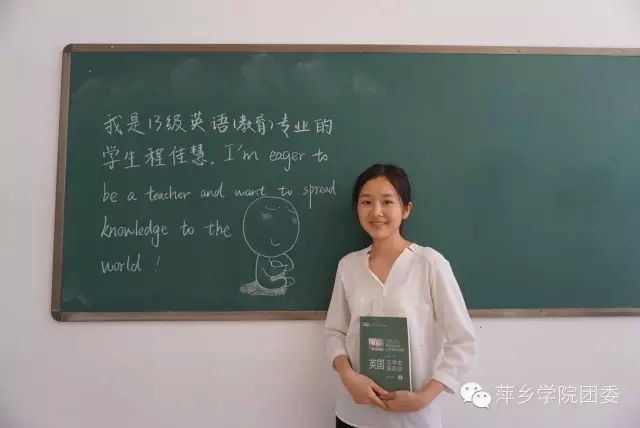 我是13级英语(教育)专业的
学生程佳慧. I'm eager to
be a teacher and want to spread
knowledge to the
world!
英国
文学史
及选读
萍乡学院团委